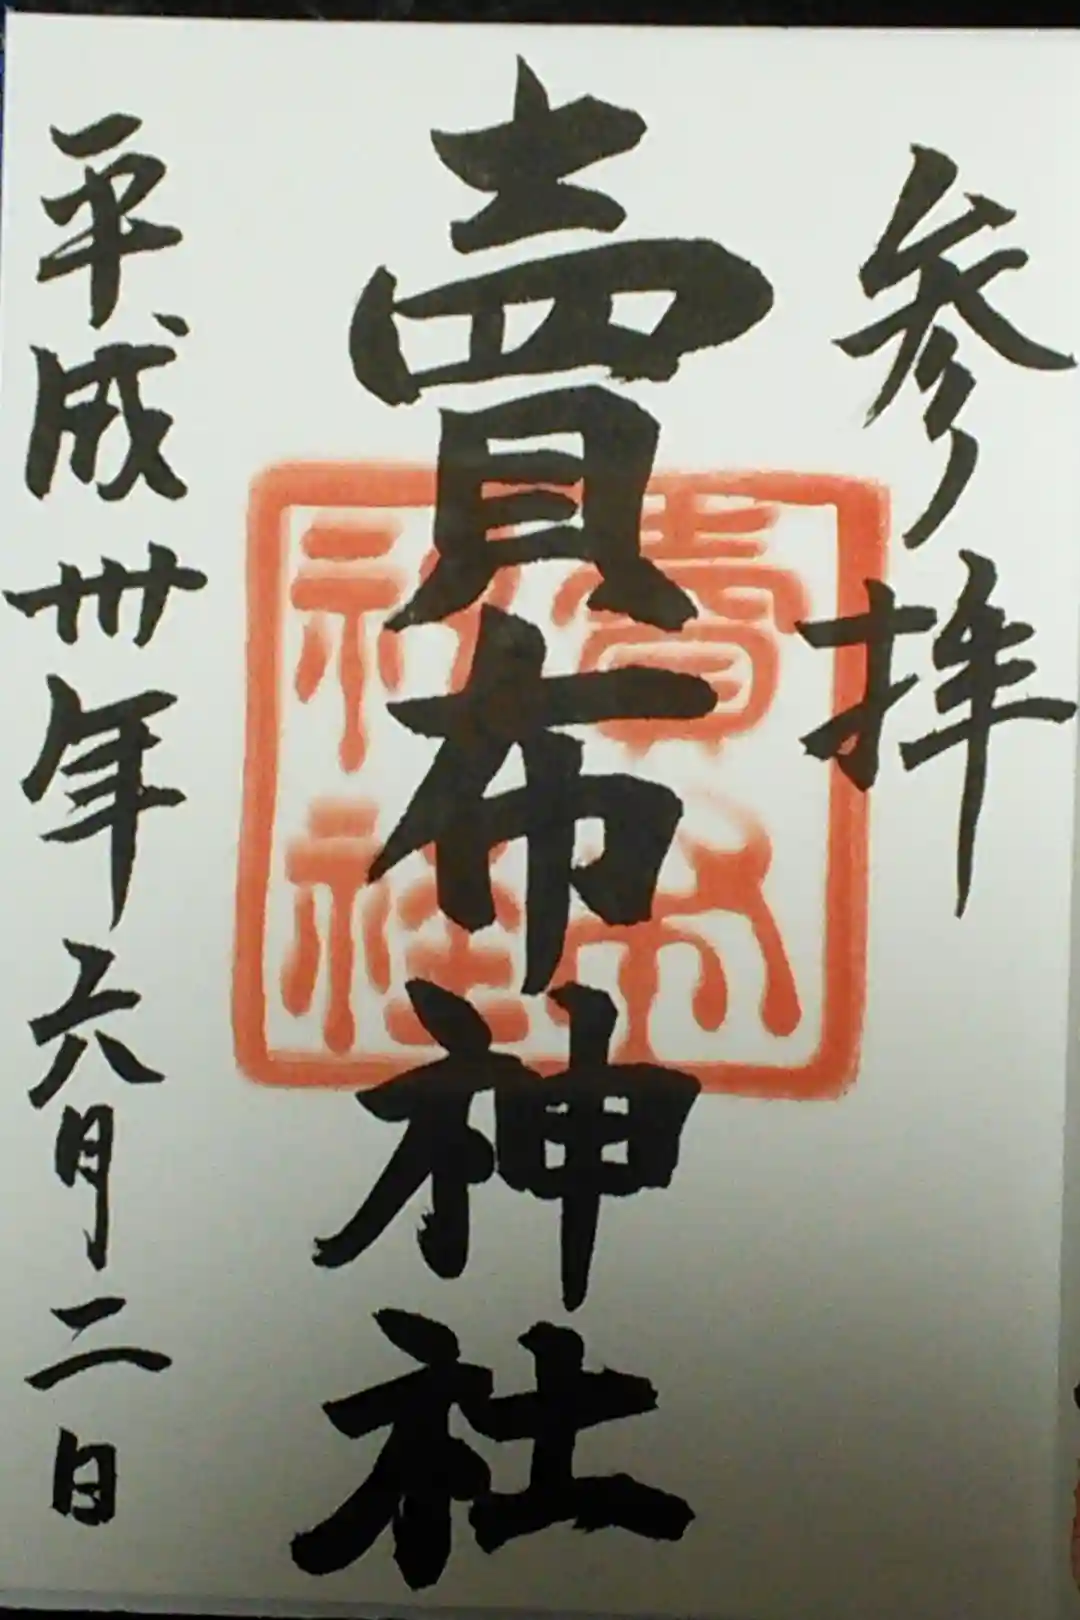 参拝
賣布神社
平成卅年六月二日
賣布
神社